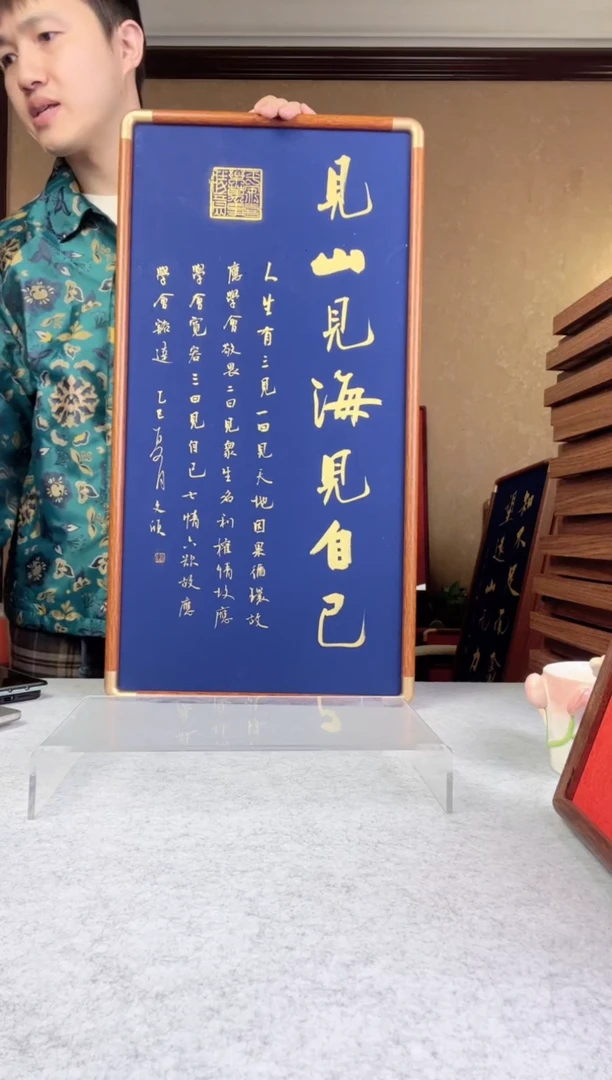 見山見海見自己
人生有三見一曰見天地因果循環故
應學會敬畏二曰見眾生名利權情故應
學會寬容三曰見自己七情六欲故應
學會豁達 乙巳
知不足而奮進
望遠山而力